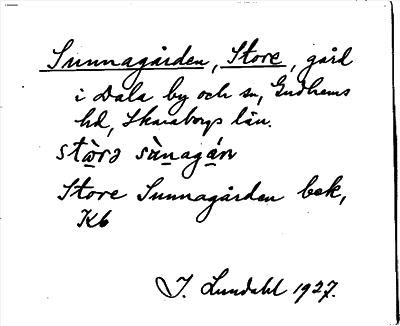 Sunnagården, Store, gård
i Dala by och sn, Gudhems
hd, Skaraborgs län.
stòrə sùnagán
Store Sunnagården bek,
Kb
J. Lundahl 1927.